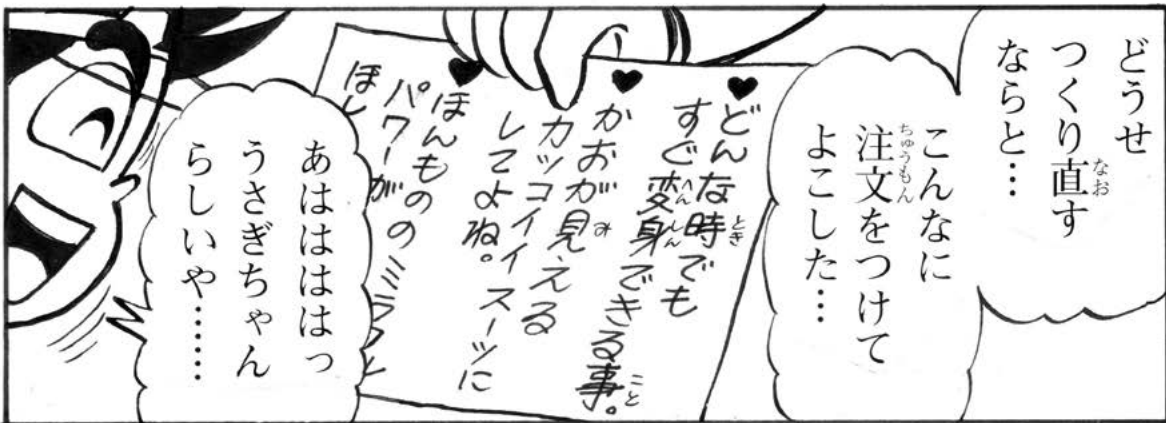 どうせ
つくり直す
ならと…
こんなに
注文をつけて
よこした…
♥どんな時でも
すぐ変身できる事。
♥かおが見える
カッコイイスーツに
してよね。
♥ほんもののミラクル
パワーが
ほし
あはははっ
うさぎちゃん
らしいや……